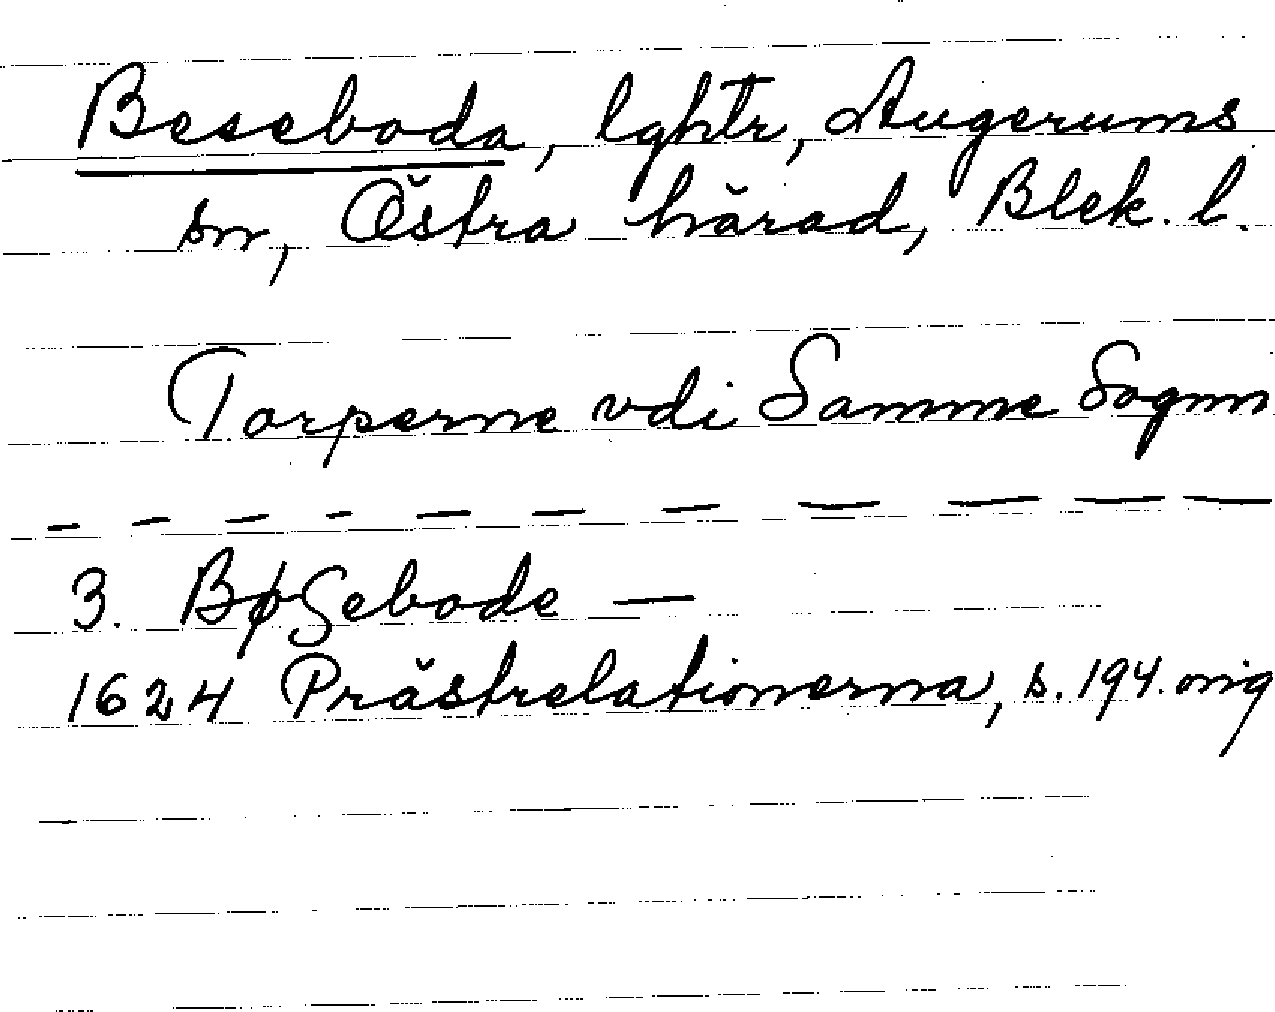 Beseboda, lghtr, Augerums
sn, Östra härad, Blek. l.
Torperne vdi Samme Sognn
— — — — — — — — — —
3. BøSebode —
1624 Prästrelationerna, s. 194. orig